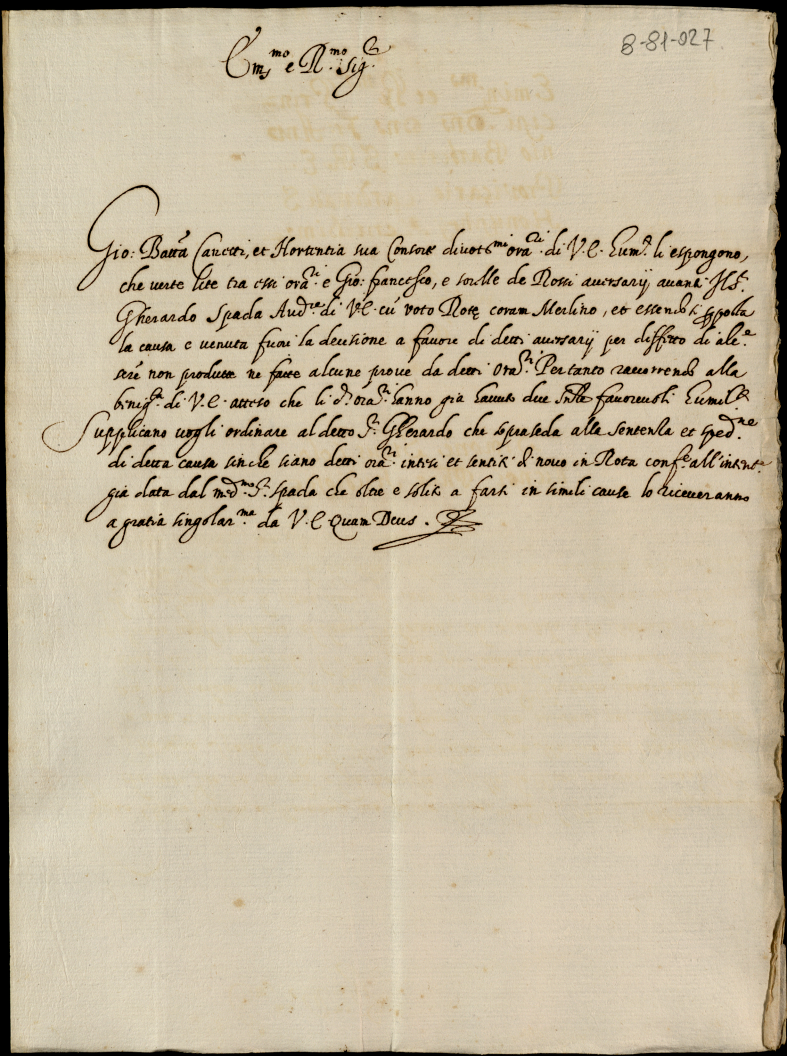 8-81-027
Em.mo e R.mo Sig.r
Gio: Batta Canetti, et Hortentia sua Consorte divotis.mi ora.ri di V. E. Hum.te li espongono,
che verte lite tra essi ora.ri e Gio: francesco, e sorelle de Rossi aversarij avanti Ill.re
Gherardo Spada Aud.re di V. E. cũ voto Rotę coram Merlino, et essendosi pposta
la causa e venuta fuori la decisione a favore di detti aversarij per diffetto di ale.
sere non produtte ne fatte alcune prove da detti Ora.ri Pertanto racorrendo alla
benig.tà di V. E. atteso che li d.i ora.ri hanno già havuto due Snțe favorevoli Humil.te
Supplicano vogli ordinare al detto S.r Gherardo che sopraseda alla Sentenza et sped.ne
di detta causa sinche siano detti ora.ri intesi et sentiti di novo in Rota conf.e all'intent.e
già data dal med.mo S.r Spada che oltre e solito a farsi in simili cause lo riceveranno
a gratia singolar.ma da V. E. Quam Deus.